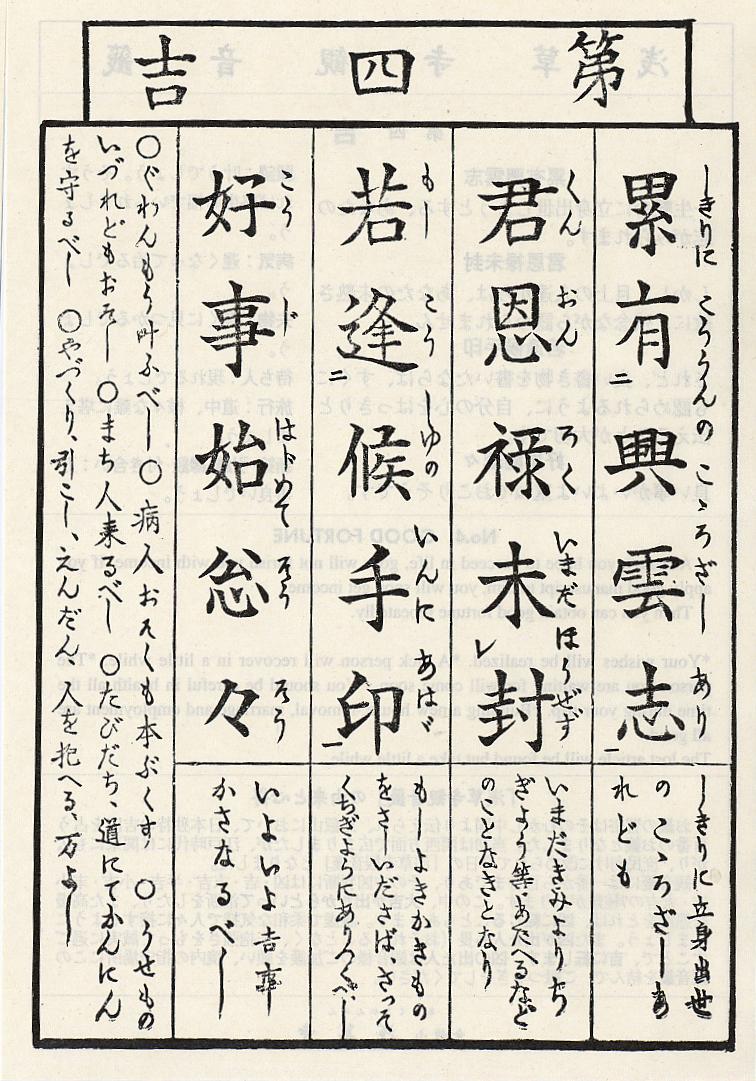 第四吉
累有興雲志
しきりに こううんの こゝろざし あり
しきりに立身出世
のこゝろざしあ
れども
君恩禄未封
くん おん ろく いまだ ほうせず
いまだきみよりち
ぎよう等あたへるなど
のことなきとなり
若逢候手印
もし こうしゆの いんに あはゞ
もしよきかきもの
をさいださばさつて
くちぎようにありつくべし
好事始忩々
こう じ はじめて そう そう
いよいよ吉事
かさなるべし
○ぐわんもう叶ふべし ○病人おそくも本ぶくす、○うせもの
いづれどもおそし ○まち人来るべし ○たびだち、道にてかんにん
を守るべし ○やづくり、引こし、えんだん、人を抱へる、万よし